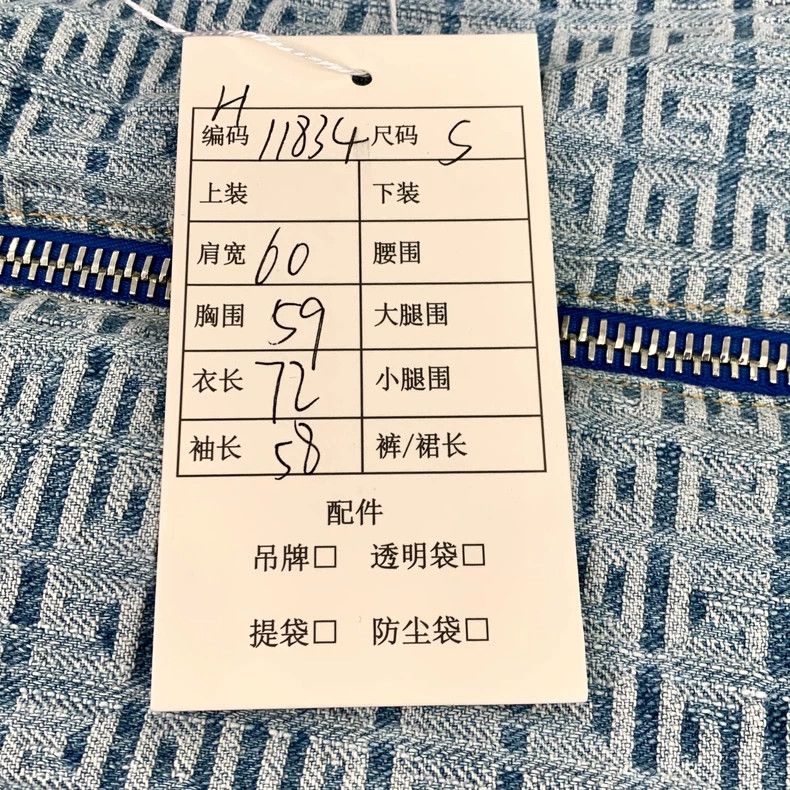 H
编码 11834 尺码 S
上装 下装
肩宽 60 腰围
胸围 59 大腿围
衣长 72 小腿围
袖长 58 裤/裙长
配件
吊牌□ 透明袋□
提袋□ 防尘袋□